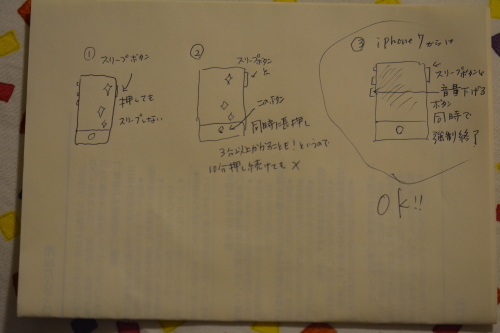 ①
スリープボタン
押しても
スリープしない
②
スリープボタン
と
このボタン
同時に長押し
3分以上かかることも!というので
10分押し続けても ×
③ iphone7からは
スリープボタンと
音量下げる
ボタン
同時で
強制終了
OK!!